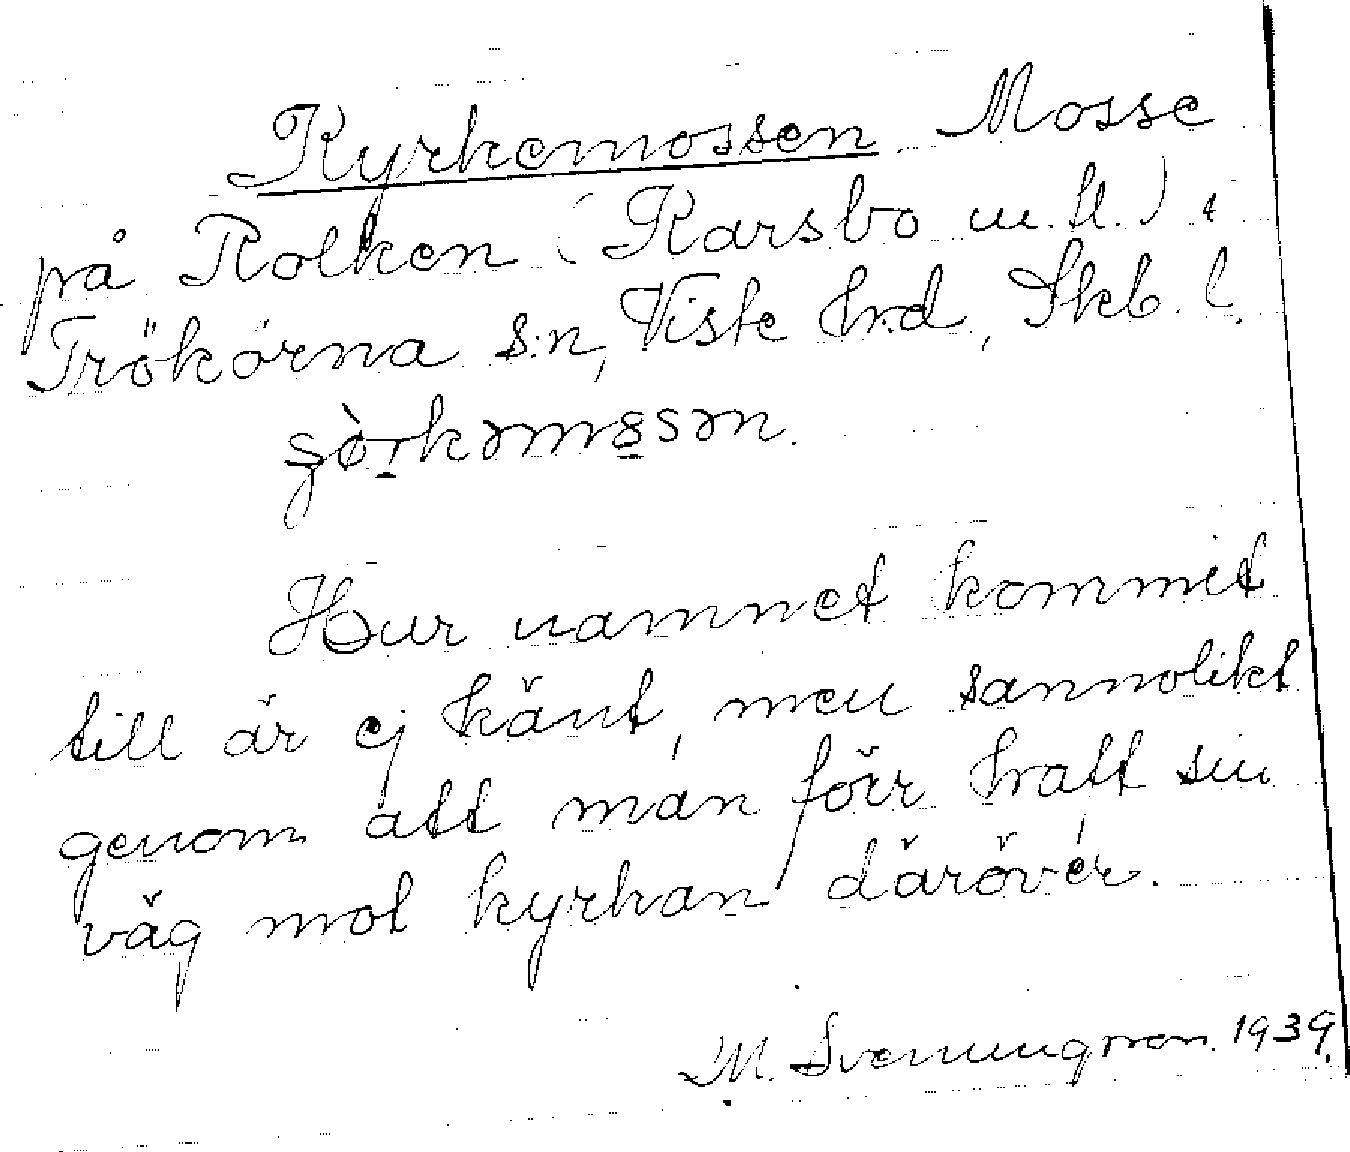 Kyrkemossen Mosse
på Rolken (Karsbo m. fl.) i
Trökörna s:n, Viste hrd, Skb. l.
Hur namnet kommit
till är ej känt, men sannolikt
genom att man förr haft sin
väg mot kyrkan däröver.
M. Svenungsson. 1939.